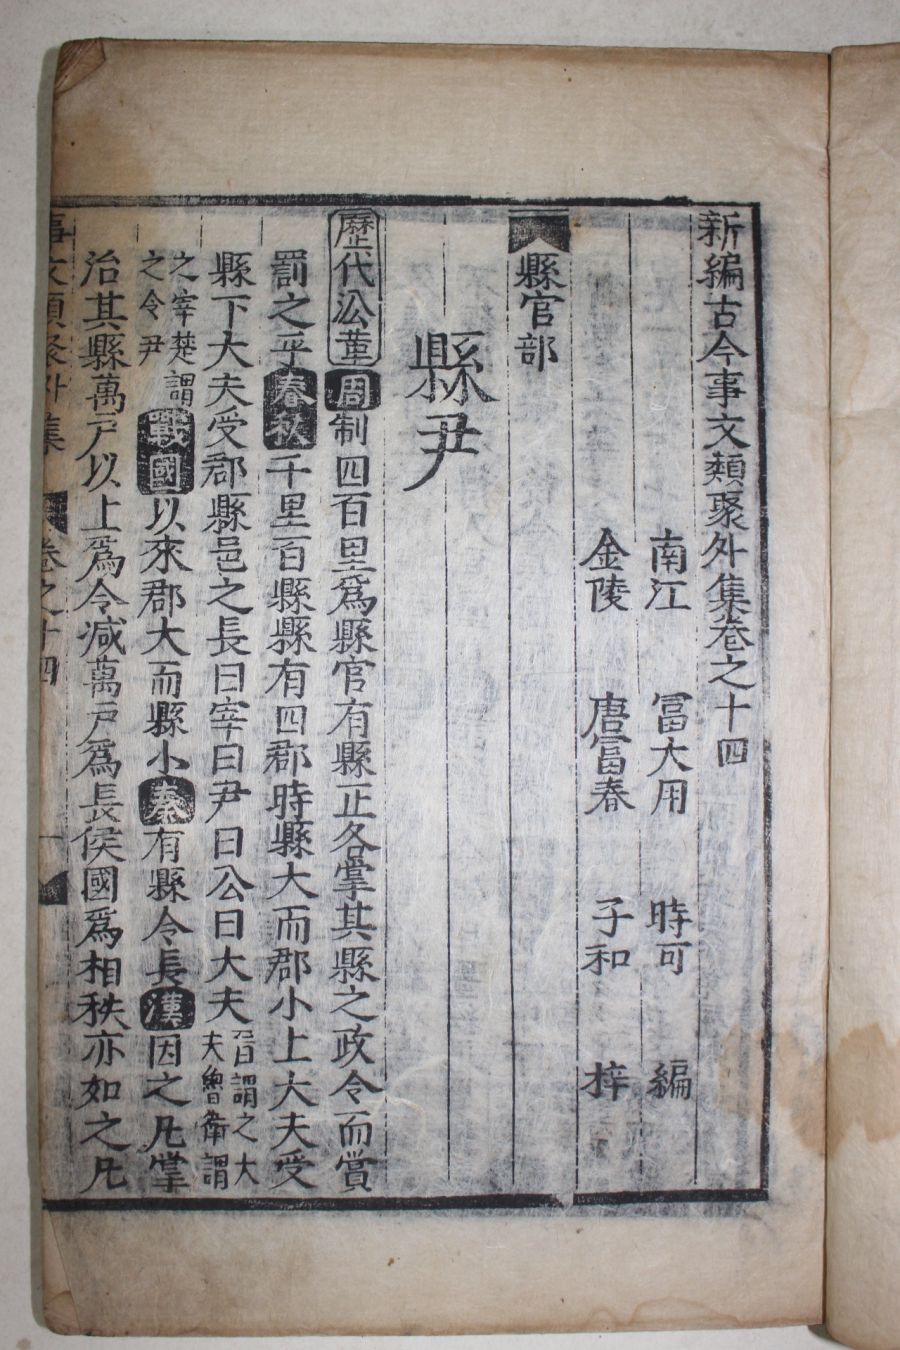 新編古今事文類聚外集卷之十四
南江 冨大用 時可 編
金陵 唐冨春 子和 梓
縣官部
縣尹
歷代沿革 周制四百里爲縣官有縣正各掌其縣之政令而賞
罰之乎春秋千里百縣縣有四郡時縣大而郡小上大夫受
縣下大夫受郡縣邑之長曰宰曰尹曰公曰大夫晉謂之大夫魯衛謂
之宰楚謂之令尹戰國以來郡大而縣小秦有縣令長漢因之凡掌
治其縣萬戶以上爲令减萬戶爲長侯國爲相秩亦如之凡
事文類聚外集 卷之十四